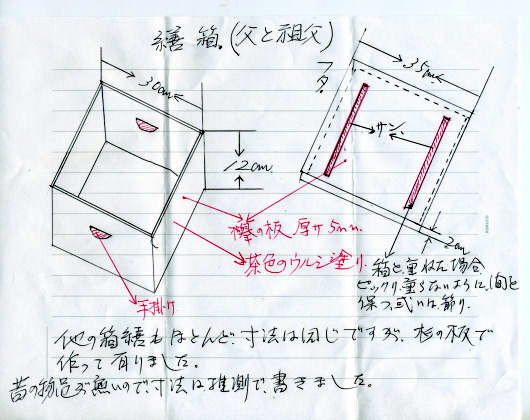 繕箱.(父と祖父)
30cm
12cm
フタ.
35cm
サン.
2cm
欅の板 厚サ5mm.
茶色のウルシ塗り.
手掛け
箱を重ねた場合
ピックリ重ならないように、間を
保つ、或いは飾り.
他の箱繕もほとんど、寸法は同じですが、杉の板で
作って有りました。
昔の物品が無いので、寸法は推測で、書きました。